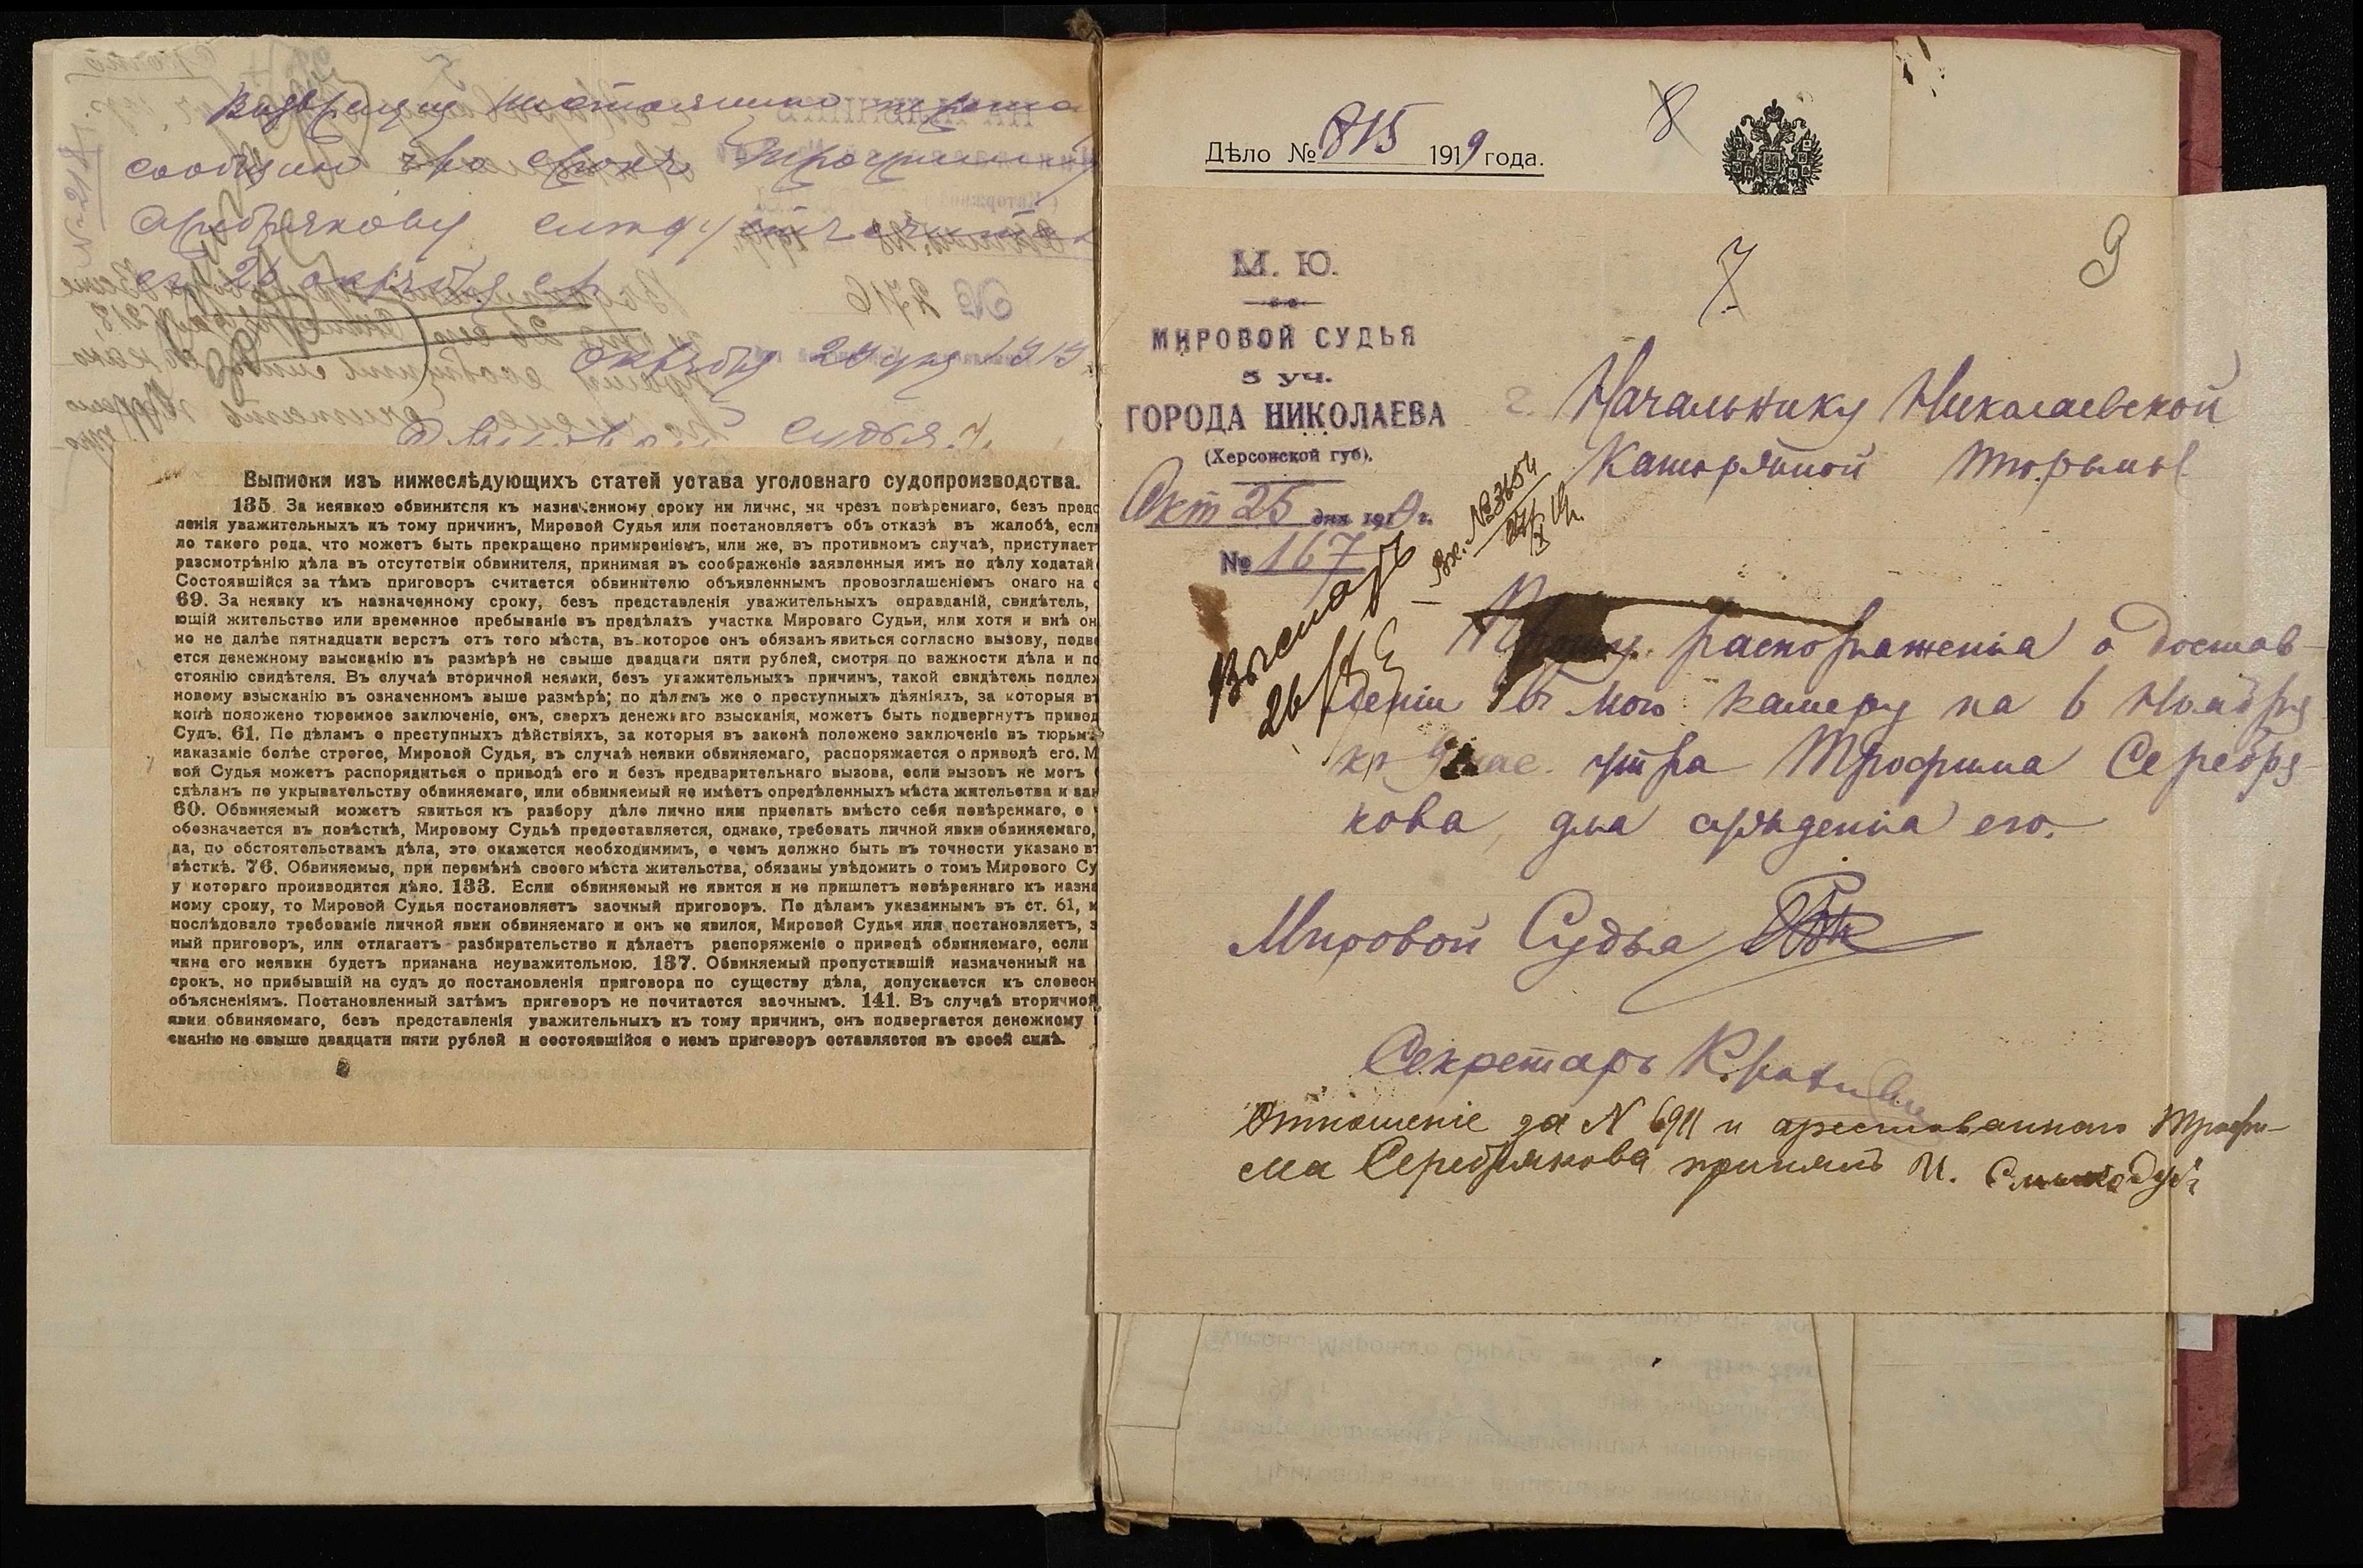 сообщаю что срокъ
Серебрякову
съ 26 октября с.г.
Октября 29 дня 1919
Мировой Судья
Выписки изъ нижеслѣдующихъ статей устава уголовнаго судопроизводства.
135. За неявкою обвинителя къ назначенному сроку ни лично, ни чрезъ повѣреннаго, безъ предс
ленія уважительныхъ къ тому причинъ, Мировой Судья или постановляетъ объ отказѣ въ жалобѣ, если
ло такого рода, что можетъ быть прекращено примиреніемъ, или же, въ противномъ случаѣ, приступает
разсмотрѣнію дѣла въ отсутствіи обвинителя, принимая въ соображеніе заявленныя имъ по дѣлу ходатай
Состоявшійся за тѣмъ приговоръ считается обвинителю объявленнымъ провозглашеніемъ онаго на с
69. За неявку къ назначенному сроку, безъ представленія уважительныхъ оправданій, свидѣтель,
ющій жительство или временное пребываніе въ предѣлахъ участка Мироваго Судьи, или хотя и внѣ он
но не далѣе пятнадцати верстъ отъ того мѣста, въ которое онъ обязанъ явиться согласно вызову, подве
ется денежному взысканію въ размѣрѣ не свыше двадцати пяти рублей, смотря по важности дѣла и по
стоянію свидѣтеля. Въ случаѣ вторичной неявки, безъ уважительныхъ причинъ, такой свидѣтель подлеж
новому взысканію въ означенномъ выше размѣрѣ; по дѣламъ же о преступныхъ дѣяніяхъ, за которыя въ
конѣ положено тюремное заключеніе, онъ, сверхъ денежнаго взысканія, можетъ быть подвергнутъ привод
Судъ. 61. По дѣламъ о преступныхъ дѣйствіяхъ, за которыя въ законѣ положено заключеніе въ тюрьмѣ
наказаніе болѣе строгое, Мировой Судья, въ случаѣ неявки обвиняемаго, распоряжается о приводѣ его. М
вой Судья можетъ распорядиться о приводѣ его и безъ предварительнаго вызова, если вызовъ не могъ
сдѣланъ по укрывательству обвиняемаго, или обвиняемый не имѣетъ опредѣленныхъ мѣста жительства и зан
60. Обвиняемый можетъ явиться къ разбору дѣла лично или прислать вмѣсто себя повѣреннаго, о ч
обозначается въ повѣсткѣ, Мировому Судьѣ предоставляется, однако, требовать личной явки обвиняемаго,
да, по обстоятельствамъ дѣла, это окажется необходимымъ, о чемъ должно быть въ точности указано въ
вѣсткѣ. 76. Обвиняемые, при перемѣнѣ своего мѣста жительства, обязаны увѣдомить о томъ Мирового Су
у котораго производится дѣло. 133. Если обвиняемый не явится и не пришлетъ повѣреннаго къ назна
ному сроку, то Мировой Судья постановляетъ заочный приговоръ. По дѣламъ указаннымъ въ ст. 61, к
послѣдовало требованіе личной явки обвиняемаго и онъ не явился, Мировой Судья или постановляетъ, з
ный приговоръ, или отлагаетъ разбирательство и дѣлаетъ распоряженіе о приводѣ обвиняемаго, если
чина его неявки будетъ признана неуважительною. 137. Обвиняемый пропустившій назначенный на
срокъ, но прибывшій на судъ до постановленія приговора по существу дѣла, допускается къ словесн
объясненіямъ. Постановленный затѣмъ приговоръ не почитается заочнымъ. 141. Въ случаѣ вторичной
явки обвиняемаго, безъ представленія уважительныхъ къ тому причинъ, онъ подвергается денежному
сканію не свыше двадцати пяти рублей и состоявшійся о немъ приговоръ оставляется въ своей силѣ.
Дѣло № 815 1919 года.
8
7
9
М. Ю.
МИРОВОЙ СУДЬЯ
5 уч.
ГОРОДА НИКОЛАЕВА
(Херсонской губ).
Окт 25 дня 1919 г.
№ 167
Вх. № 3654
Выслать
26/X
г. Начальнику Николаевской
Каторжной тюрьмы
Прошу распоряженія о достав-
леніи въ мою камеру на 6 Ноября
къ 9 час. утра Трофима Серебря-
кова, для сужденія его.
Мировой Судья
Секретарь
Отношеніе за N 6911 и арестованнаго Трофи-
ма Серебрякова принялъ И.